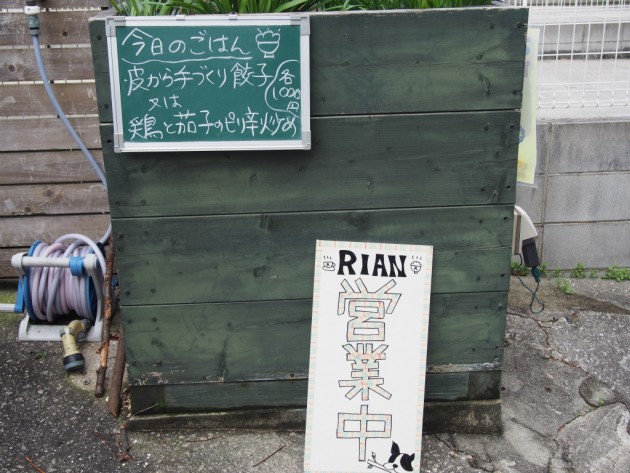 今日のごはん
皮から手づくり餃子
又は
鶏と茄子のピリ辛炒め
各
1000
円
RIAN
営業中